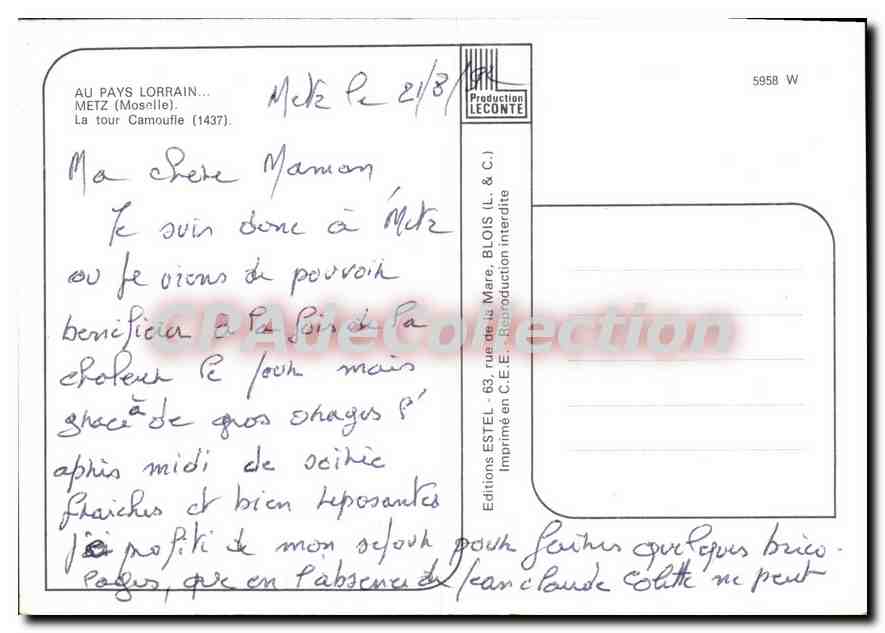 AU PAYS LORRAIN...
METZ (Moselle).
La tour Camoufle (1437).
Metz le 21/8/92
Production
LECONTE
5958 W
Ma chere Maman,
Je suis donc à Metz
ou je viens de pouvoir
beneficier a la fois de la
chaleur le jour mais
grace à de gros orages l'
après midi de soirée
fraiches et bien reposantes
j'ai profité de mon sejour pour faire quelques brico-
lages, que en l'absence de Jean claude Colette ne peut
Editions ESTEL - 63, rue de la Mare, BLOIS (L. & C.)
Imprimé en C.E.E. - Reproduction interdite
CPAdeCollection